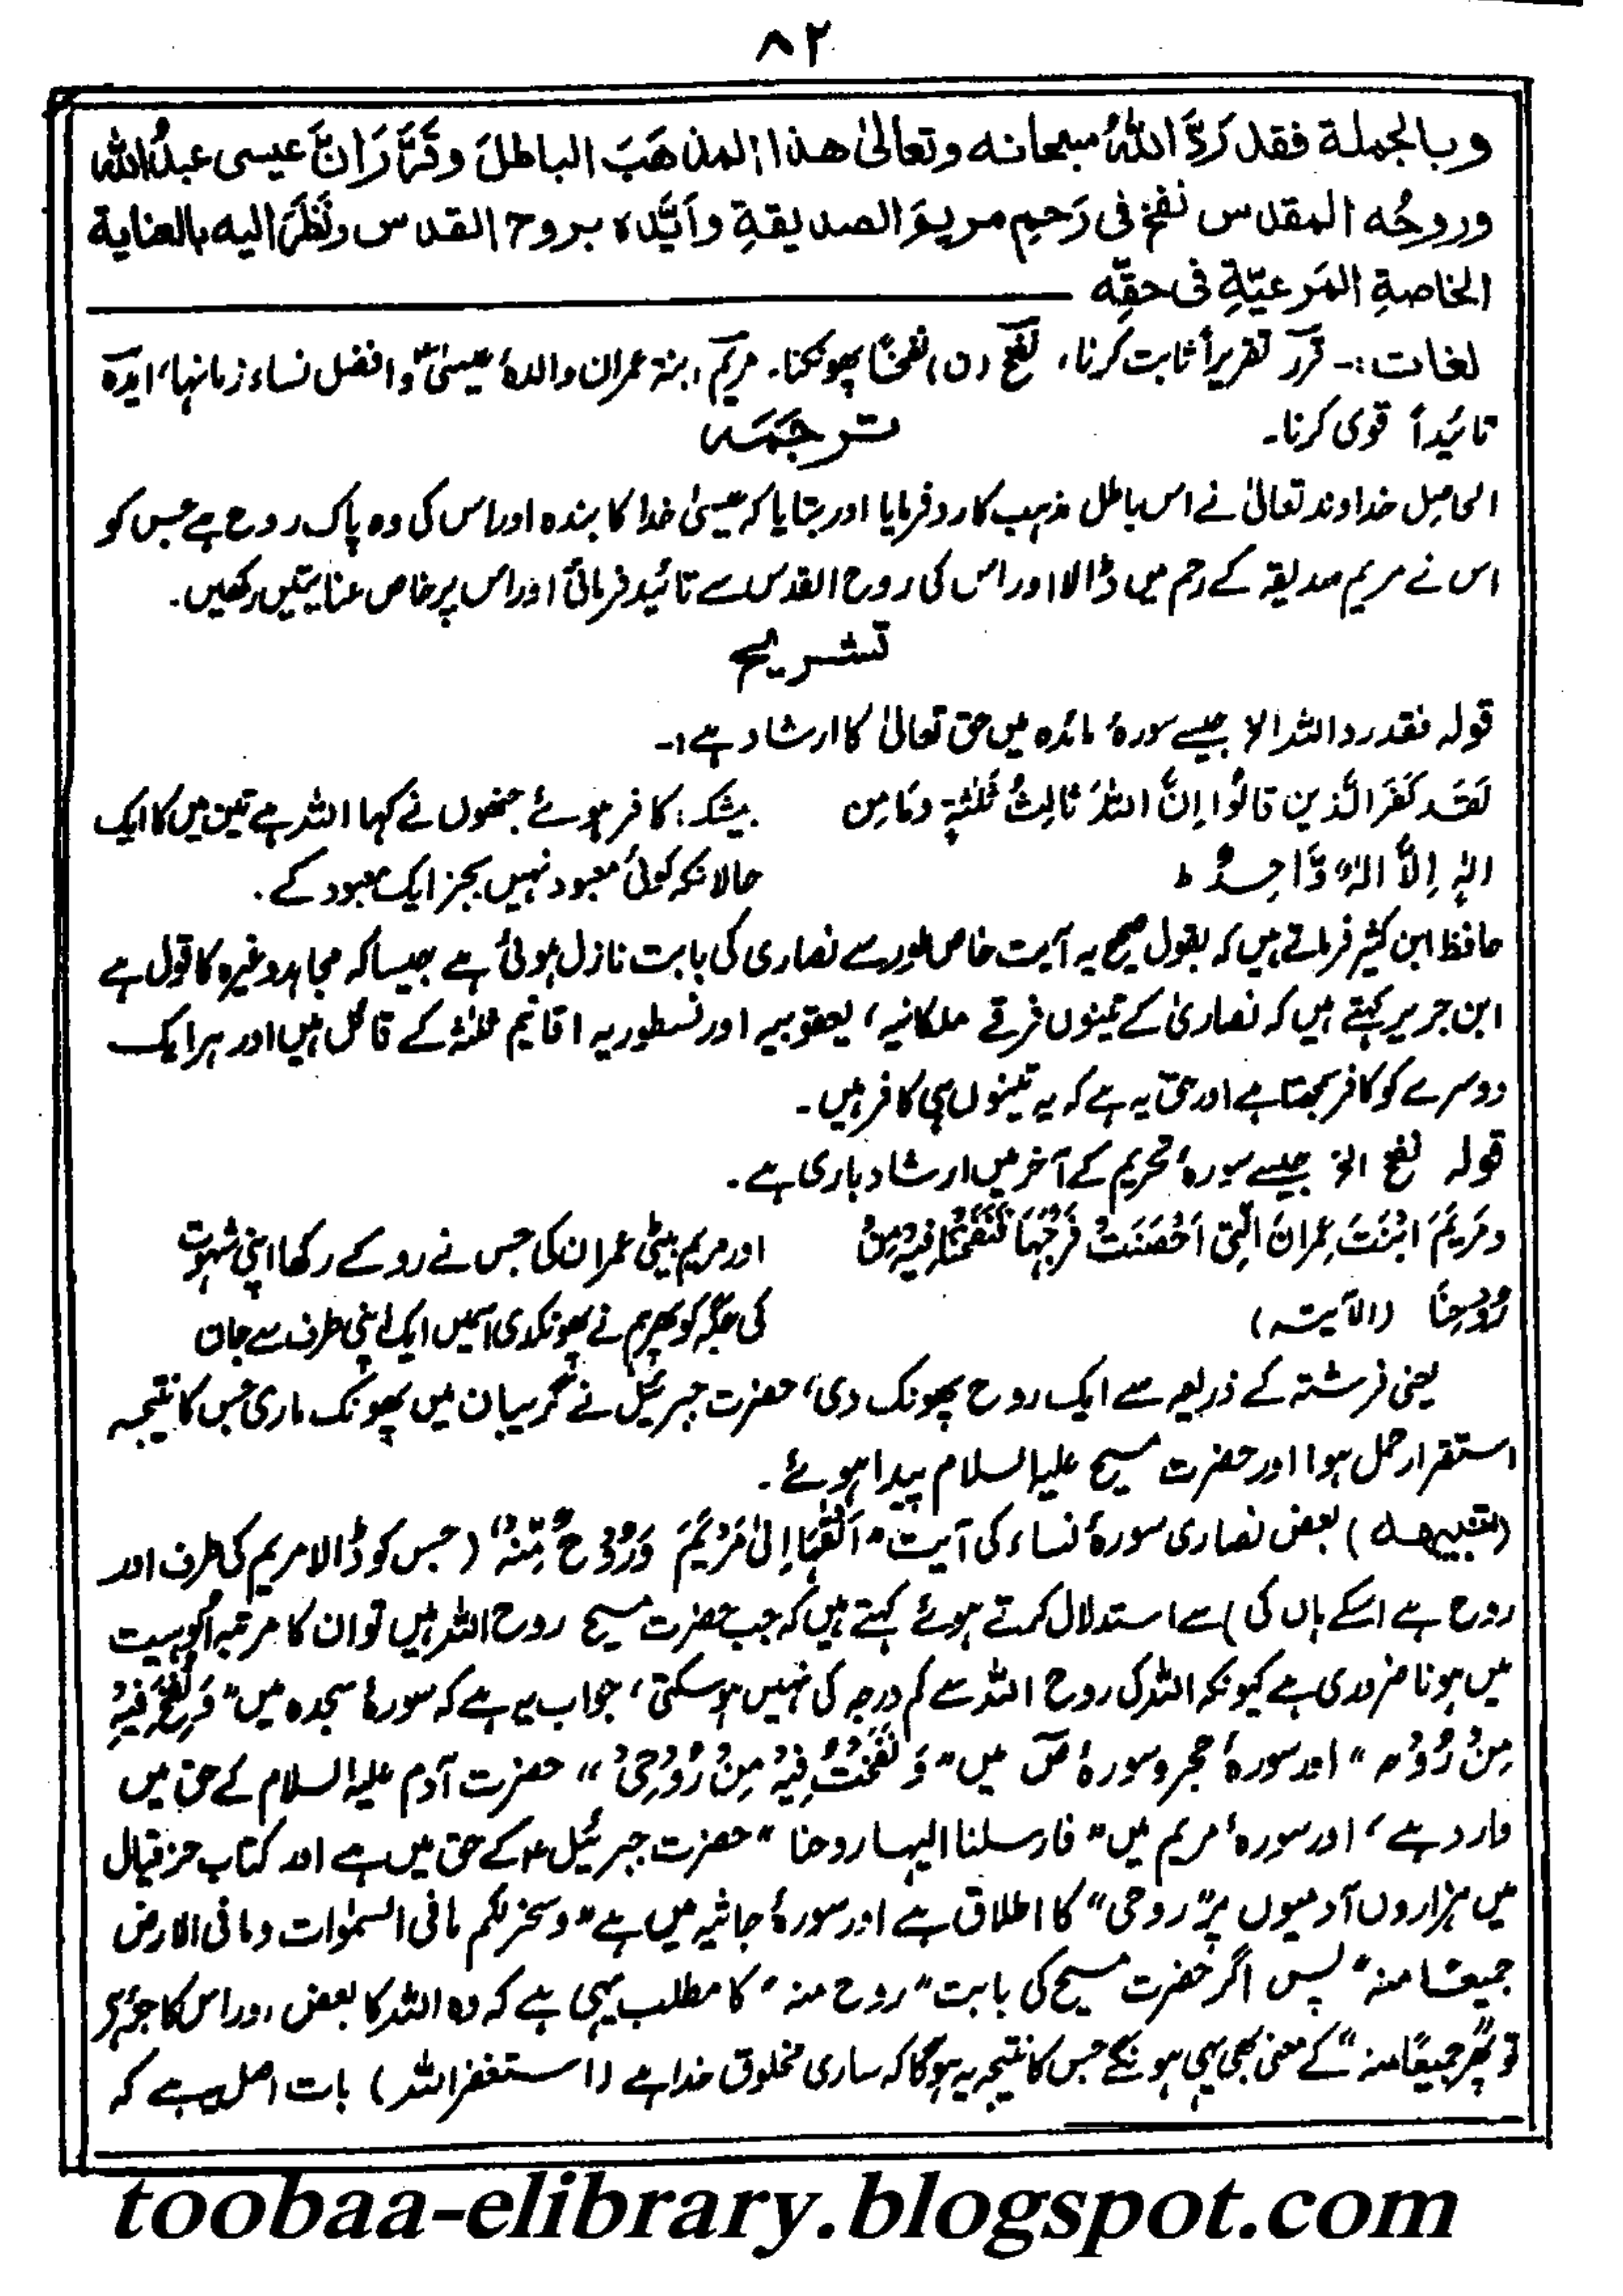 ۸۲
وبالجملة فقد رَدَّ اللهُ سبحانه وتعالىٰ هذا المذهَبَ الباطلَ وقَرَّرَ اَنَّ عيسى عبدُ الله
وروحُه المقدس نفخ فى رَحِمِ مريمَ الصديقةِ واَيَّده بروح القدس ونَظَرَ اليه بالعناية
الخاصةِ المَرعيّةِ فى حقِّه
لغات :۔ قرّر تقریراً ثابت کرنا، نفخ (ن) نفخًا پھونکنا۔ مریم، ابنة عمران والدۂ عیسیٰؑ وافضل نساء زمانہا، ایّدہ
تائیداً قوی کرنا۔
ترجَمَہ
الحاصل خداوند تعالیٰ نے اس باطل مذہب کا رد فرمایا اور بتایا کہ عیسیٰ خدا کا بندہ اور اس کی وہ پاک روح ہے جس کو
اس نے مریم صدیقہ کے رحم میں ڈالا اور اس کی روح القدس سے تائید فرمائی اور اس پر خاص عنایتیں رکھیں۔
تشریح
قولہ فقد رد اللہ الخ جیسے سورۂ مائدہ میں حق تعالیٰ کا ارشاد ہے :۔
لَقَد كَفَرَ الَّذِين قَالُوا اِنَّ اللهَ ثَالِثُ ثَلٰثَةٍ وَمَا مِن بیشک کافر ہوئے جنھوں نے کہا اللہ ہے تین میں کا ایک
اِلٰهٍ اِلَّا اِلٰهٌ وَّاحِدٌ ط حالانکہ کوئی معبود نہیں بجز ایک معبود کے۔
حافظ ابن کثیر فرماتے ہیں کہ بقول صحیح یہ آیت خاص طور سے نصاری کی بابت نازل ہوئی ہے جیسا کہ مجاہد وغیرہ کا قول ہے
ابن جریر کہتے ہیں کہ نصاریٰ کے تینوں فرقے ملکانیہ، یعقوبیہ اور نسطوریہ اقانیم ثلثہ کے قائل ہیں اور ہر ایک
دوسرے کو کافر سمجھتا ہے اور حق یہ ہے کہ یہ تینوں ہی کافر ہیں۔
قولہ نفخ الخ جیسے سورۂ تحریم کے آخر میں ارشاد باری ہے۔
وَمَرْيَمَ ابْنَتَ عِمرانَ الَّتِى اَحْصَنَتْ فَرْجَهَا فَنَفَخْنَا فِيْهِ مِنْ اور مریم بیٹی عمران کی جس نے روکے رکھا اپنی شہوت
رُوْحِنَا (الآیتہ) کی جگہ کو پھر ہم نے پھونکدی اسمیں ایک اپنی طرف سے جان
یعنی فرشتہ کے ذریعہ سے ایک روح پھونک دی، حضرت جبرئیل نے گریبان میں پھونک ماری جس کا نتیجہ
استقرار حمل ہوا اور حضرت مسیح علیہ السلام پیدا ہوئے۔
(تنبیہہ) بعض نصاری سورۂ نساء کی آیت "اَلْقٰهَا اِلىٰ مَرْيَمَ وَرُوْحٌ مِّنْهُ" (جس کو ڈالا مریم کی طرف اور
روح ہے اسکے ہاں کی) سے استدلال کرتے ہوئے کہتے ہیں کہ جب حضرت مسیح روح اللہ ہیں تو ان کا مرتبہ الُوہیت
میں ہونا ضروری ہے کیونکہ اللہ کی روح اللہ سے کم درجہ کی نہیں ہوسکتی، جواب یہ ہے کہ سورۂ سجدہ میں "وَنَفَخَ فِيْهِ
مِنْ رُوْحہ" اور سورۂ حجر و سورۂ صٓ میں "وَنَفَخْتُ فِيْهِ مِنْ رُوْحِىْ" حضرت آدم علیہ السلام کے حق میں
وارد ہے، اور سورۂ مریم میں "فارسلنا الیہا روحنا" حضرت جبرئیل ؑ کے حق میں ہے اور کتاب حزقیال
میں ہزاروں آدمیوں پر "روحی" کا اطلاق ہے اور سورۂ جاثیہ میں ہے "وسخر لکم مافی السمٰوات ومافی الارض
جمیعًا منہ" پس اگر حضرت مسیح کی بابت "روح منہ" کا مطلب یہی ہے کہ وہ اللہ کا بعض اور اس کا جزء ہی
تو پھر "جمیعًا منہ" کے معنی بھی یہی ہونگے جس کا نتیجہ یہ ہوگا کہ ساری مخلوق خدا ہے (استغفر اللہ) بات اصل یہ ہے کہ
toobaa-elibrary.blogspot.com